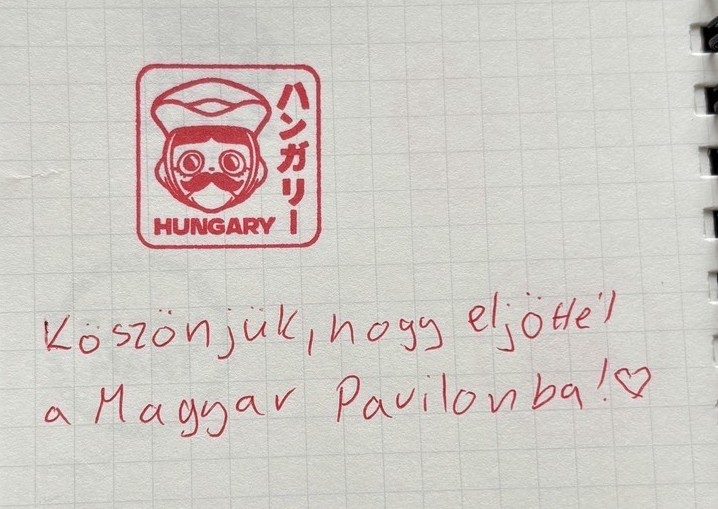 ハンガリー
HUNGARY
Köszönjük, hogy eljötté'l
a Magyar Pavilonba!♡